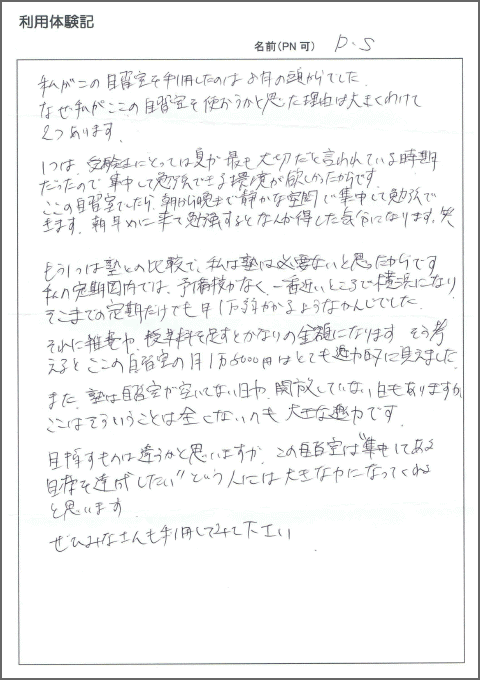 利用体験記
名前(PN可) D.S
私がこの自習室を利用したのは8月の頭からでした。
なぜ私がここの自習室を使おうかと思った理由は大きくわけて
2つあります。
1つは、受験生にとっては夏が最も大切だと言われている時期
だったので集中して勉強できる環境が欲しかったからです。
ここの自習室でしたら、朝から晩まで静かな空間で集中して勉強で
きます。朝早めに来て勉強するとなんか得した気分になります。笑
もう1つは塾との比較で、私は塾は必要ないと思ったからです
私の定期圏内では、予備校がなく、一番近いところで横浜になり
そこまでの定期だけでも月1万弱かかるようなかんじでした。
それに雑費や、授業料を足すとかなりの金額になります そう考
えると ここの自習室の月1万5000円はとても魅力的に見えました
また、塾は自習室が空いてない日や、開放していない日もありますが、
ここはそういうことは全くないのも 大きな魅力です。
目指すものは違うかと思いますが、この自習室は"集中してある
目標を達成したい"という人には大きな力になってくれる
と思います
ぜひみなさんも利用してみて下さい